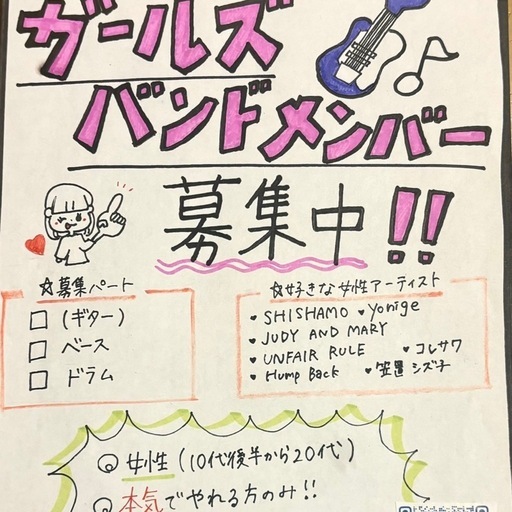 ガールズ
バンドメンバー
募集中!!
☆募集パート
□ (ギター)
□ ベース
□ ドラム
☆好きな女性アーティスト
♥ SHISHAMO ♥ yonige
♥ JUDY AND MARY
♥ UNFAIR RULE ♥ コレサワ
♥ Hump Back ♥ 笠置シズ子
◎ 女性 (10代後半から20代)
◎ 本気でやれる方のみ!!